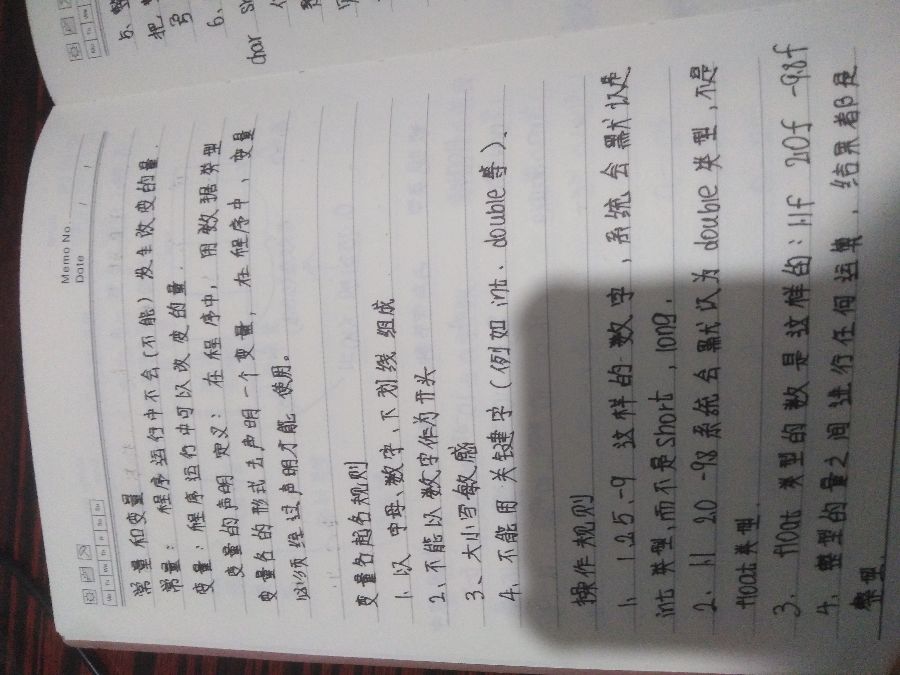 Memo No.
Date / /
Mo Tu We Th Fr Sa Su
常量和变量
常量： 程序运行中不会(不能)发生改变的量.
变量：程序运行中可以改变的量.
变量的声明定义：在程序中，用数据类型
变量名的形式去声明一个变量，在程序中、变量
必须经过声明才能使用。
变量名起名规则
1、以 字母、数字、下划线组成
2、不能以数字作为开头
3、大小写敏感
4、不能用关键字（例如int、double等）、
操作规则
1、 1.2 5、-9 这样的数字，系统会默认是
int类型，而不是short，long.
2、 1.1 2.0 -9.8 系统会默认为double类型，不是
float类型.
3、 float 类型的数是这样的：1.1f 2.0f -9.8f
4、整型的量之间进行任何运算，结果都是
整型.
5、整
把
号
6、
char
Mo Tu We